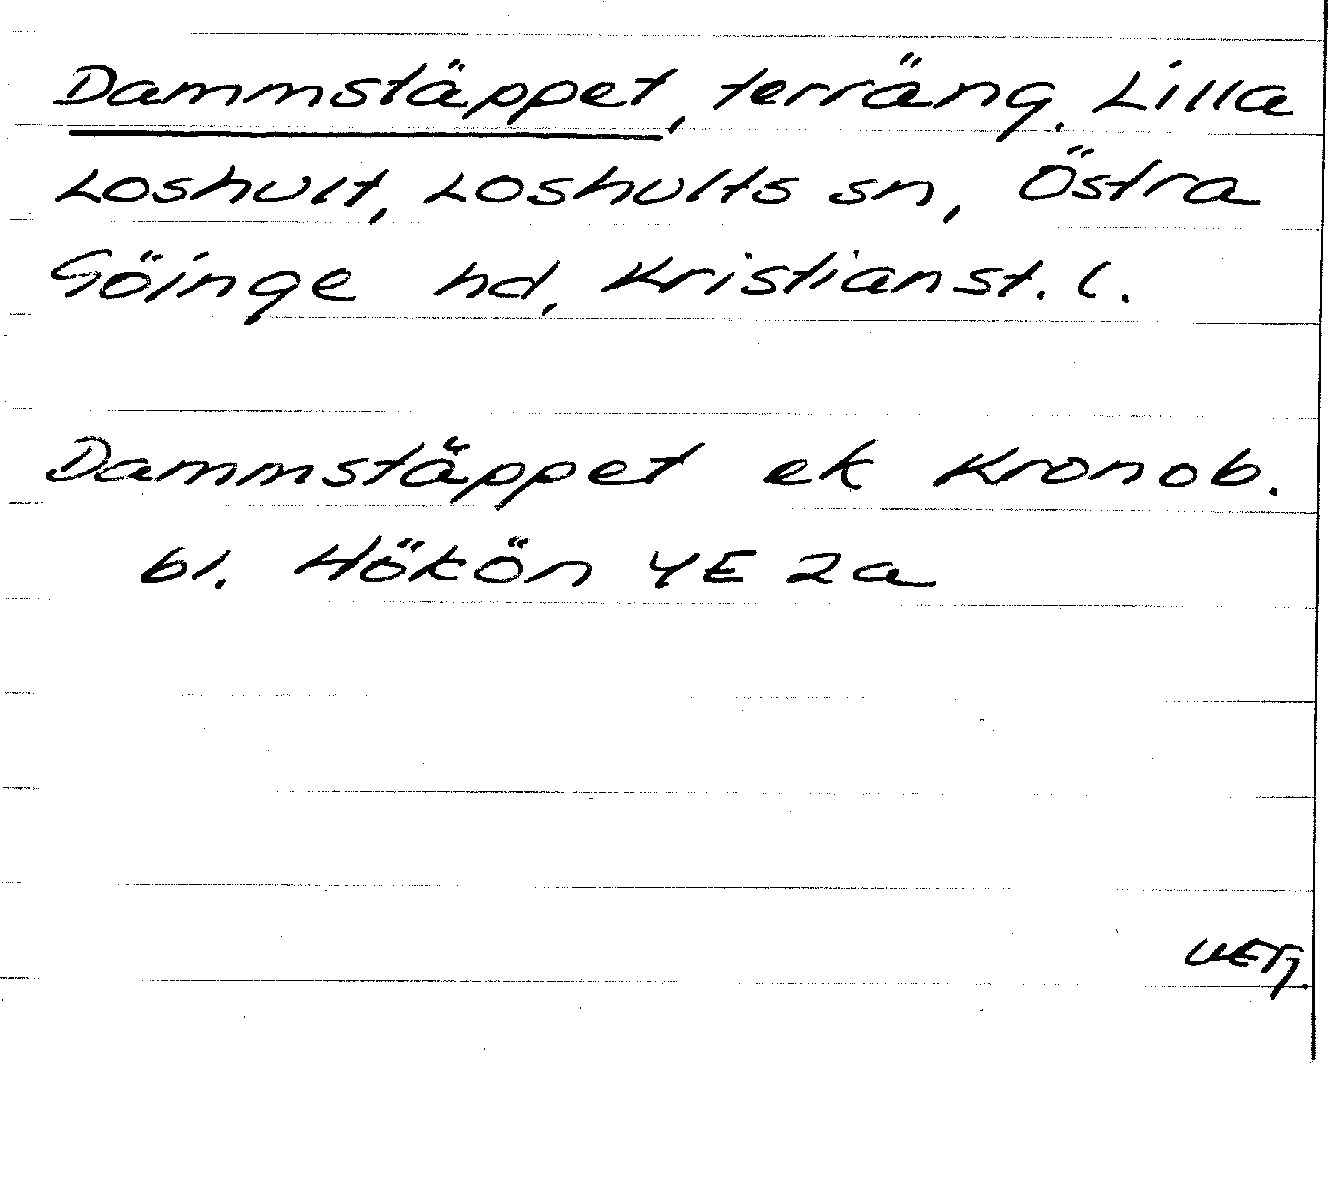 Dammstäppet, terräng. Lilla
Loshult, Loshults sn, Östra
Göinge hd, Kristianst. l.
Dammstäppet ek Kronob.
bl. Hökön 4E 2a